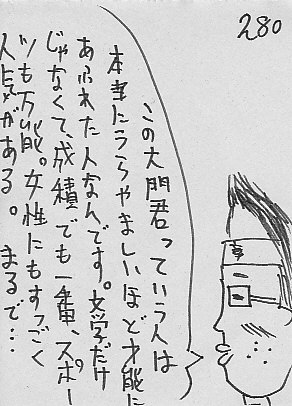 280
この大門君っていう人は
本当にうらやましいほど才能に
あふれた人なんです。文学だけ
じゃなくて、成積でも一番、スポー
ツも万能。女性にもすっごく
人気がある。まるで…